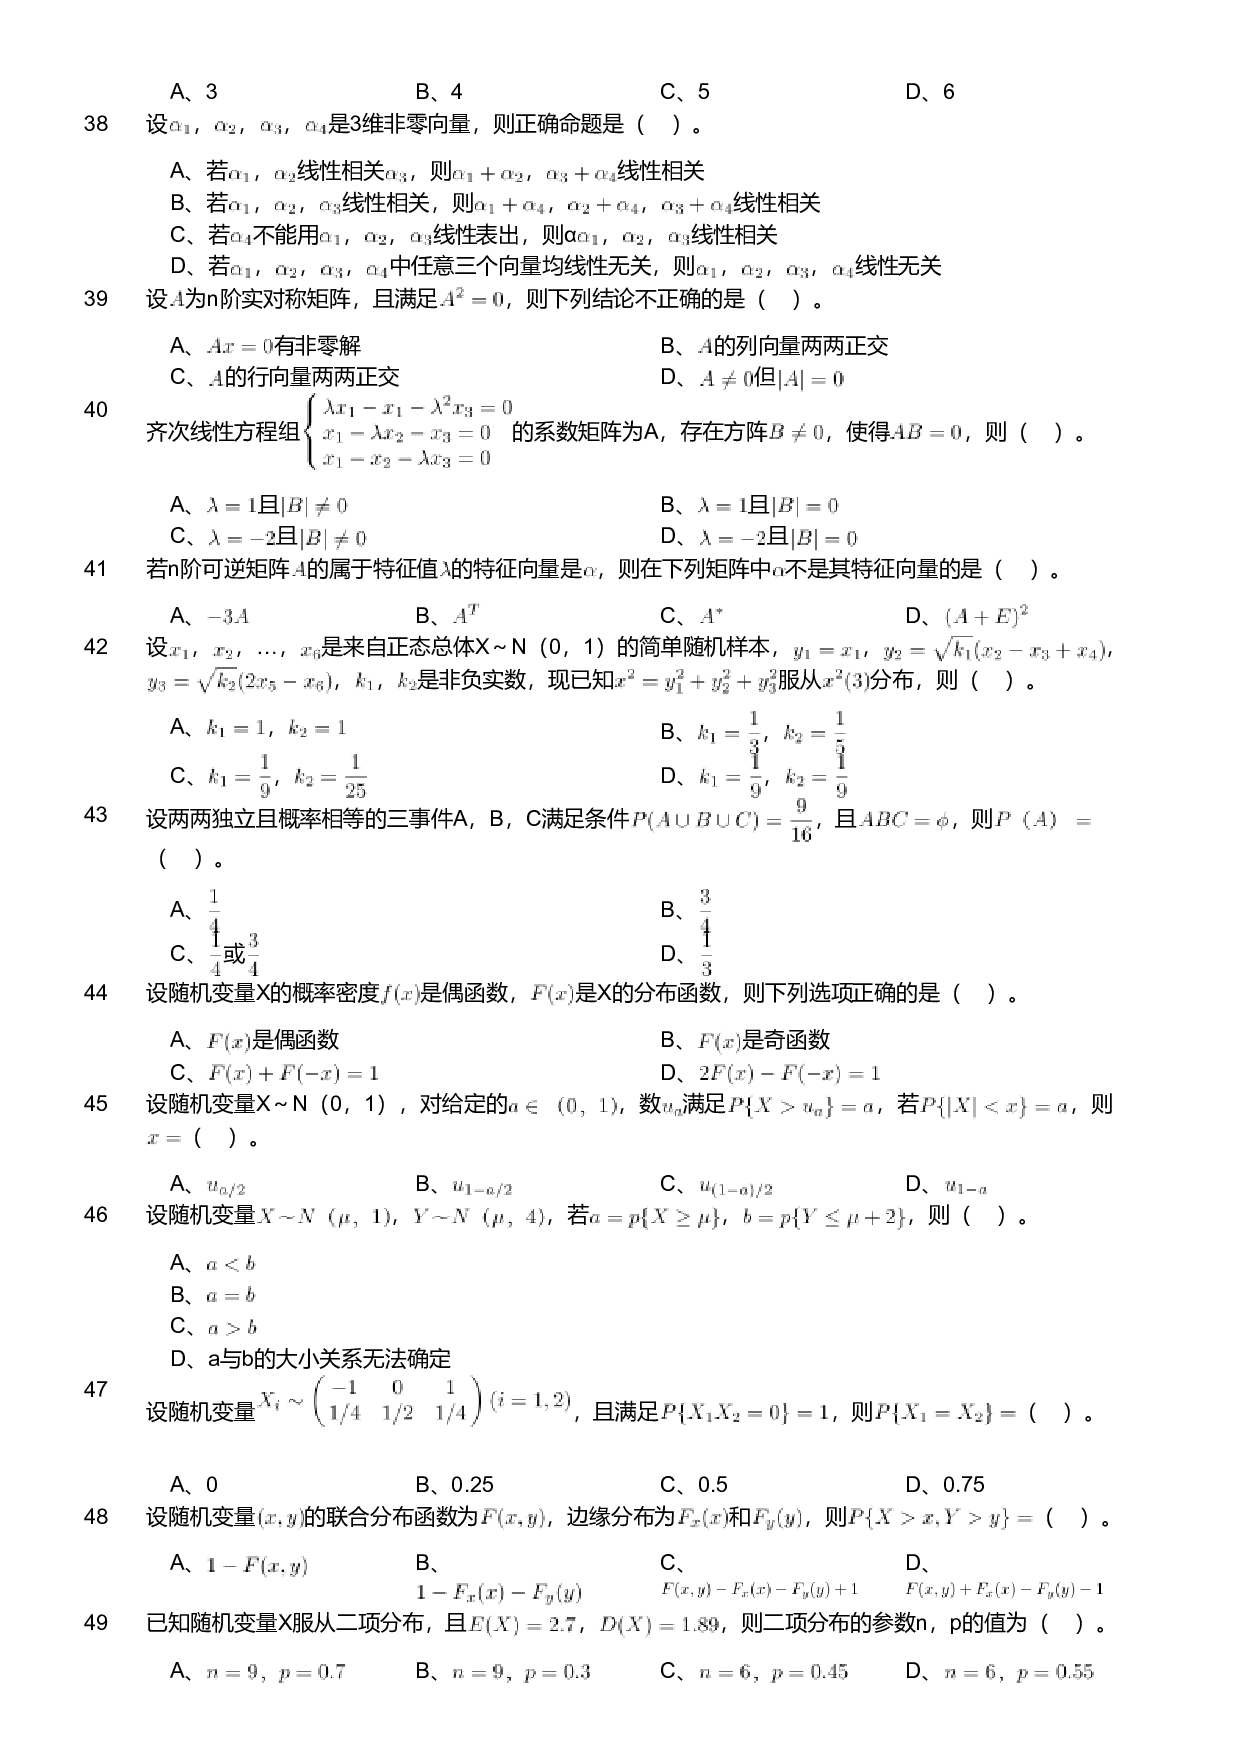 A、3 B、4 C、5 D、6
38 设α₁，α₂，α₃，α₄是3维非零向量，则正确命题是（ ）。
A、若α₁，α₂线性相关α₃，则α₁ + α₂，α₃ + α₄线性相关
B、若α₁，α₂，α₃线性相关，则α₁ + α₄，α₂ + α₄，α₃ + α₄线性相关
C、若α₄不能用α₁，α₂，α₃线性表出，则αα₁，α₂，α₃线性相关
D、若α₁，α₂，α₃，α₄中任意三个向量均线性无关，则α₁，α₂，α₃，α₄线性无关
39 设A为n阶实对称矩阵，且满足A² = 0，则下列结论不正确的是（ ）。
A、Ax = 0有非零解 B、A的列向量两两正交
C、A的行向量两两正交 D、A ≠ 0但|A| = 0
40 齐次线性方程组{ λx₁ − x₁ − λ²x₃ = 0
x₁ − λx₂ − x₃ = 0 的系数矩阵为A，存在方阵B ≠ 0，使得AB = 0，则（ ）。
x₁ − x₂ − λx₃ = 0
A、λ = 1且|B| ≠ 0 B、λ = 1且|B| = 0
C、λ = −2且|B| ≠ 0 D、λ = −2且|B| = 0
41 若n阶可逆矩阵A的属于特征值λ的特征向量是α，则在下列矩阵中α不是其特征向量的是（ ）。
A、−3A B、Aᵀ C、A* D、(A + E)²
42 设x₁，x₂，…，x₆是来自正态总体X～N（0，1）的简单随机样本，y₁ = x₁，y₂ = √k₁(x₂ − x₃ + x₄)，
y₃ = √k₂(2x₅ − x₆)，k₁，k₂是非负实数，现已知x² = y₁² + y₂² + y₃²服从x²(3)分布，则（ ）。
A、k₁ = 1，k₂ = 1 B、k₁ = 1/3，k₂ = 1/5
C、k₁ = 1/9，k₂ = 1/25 D、k₁ = 1/9，k₂ = 1/9
43 设两两独立且概率相等的三事件A，B，C满足条件P(A∪B∪C) = 9/16，且ABC = ϕ，则P（A） =
（ ）。
A、1/4 B、3/4
C、1/4或3/4 D、1/3
44 设随机变量X的概率密度f(x)是偶函数，F(x)是X的分布函数，则下列选项正确的是（ ）。
A、F(x)是偶函数 B、F(x)是奇函数
C、F(x) + F(−x) = 1 D、2F(x) − F(−x) = 1
45 设随机变量X～N（0，1），对给定的a ∈ （0，1），数uₐ满足P{X > uₐ} = a，若P{|X| < x} = a，则
x =（ ）。
A、u_{a/2} B、u_{1−a/2} C、u_{(1−a)/2} D、u_{1−a}
46 设随机变量X∼N（μ，1），Y∼N（μ，4），若a = p{X ≥ μ}，b = p{Y ≤ μ + 2}，则（ ）。
A、a < b
B、a = b
C、a > b
D、a与b的大小关系无法确定
47 设随机变量Xᵢ ∼ ( −1 0 1
1/4 1/2 1/4 ) (i = 1, 2)，且满足P{X₁X₂ = 0} = 1，则P{X₁ = X₂} =（ ）。
A、0 B、0.25 C、0.5 D、0.75
48 设随机变量(x, y)的联合分布函数为F(x, y)，边缘分布为Fₓ(x)和F_y(y)，则P{X > x, Y > y} =（ ）。
A、1 − F(x, y) B、 C、 D、
1 − Fₓ(x) − F_y(y) F(x, y) − Fₓ(x) − F_y(y) + 1 F(x, y) + Fₓ(x) − F_y(y) − 1
49 已知随机变量X服从二项分布，且E(X) = 2.7，D(X) = 1.89，则二项分布的参数n，p的值为（ ）。
A、n = 9，p = 0.7 B、n = 9，p = 0.3 C、n = 6，p = 0.45 D、n = 6，p = 0.55